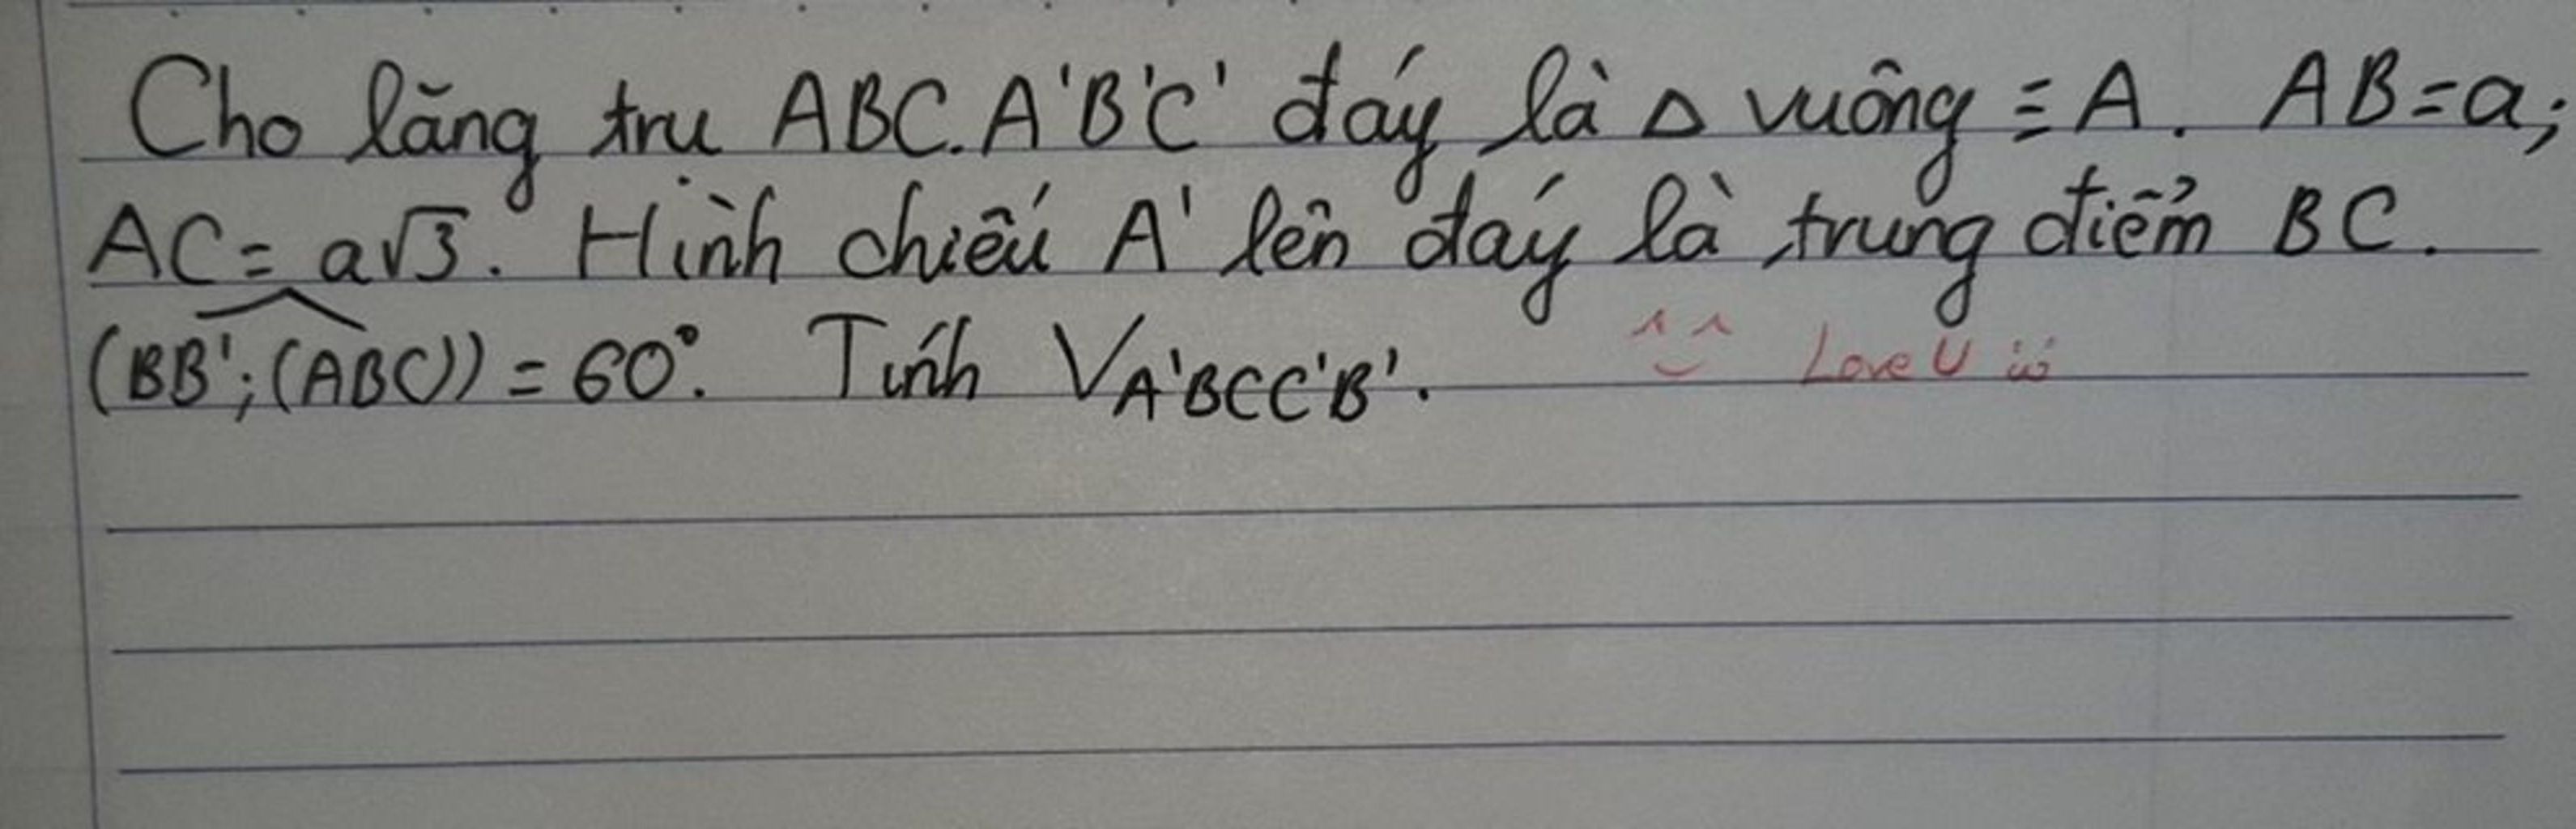 Cho lăng trụ ABC.A'B'C' đáy là Δ vuông ≡ A. AB=a;
AC= a√3. Hình chiếu A' lên đáy là trung điểm BC.
(BB';(ABC)) = 60°. Tính V_A'BCC'B'. ^^ Love U :ω: